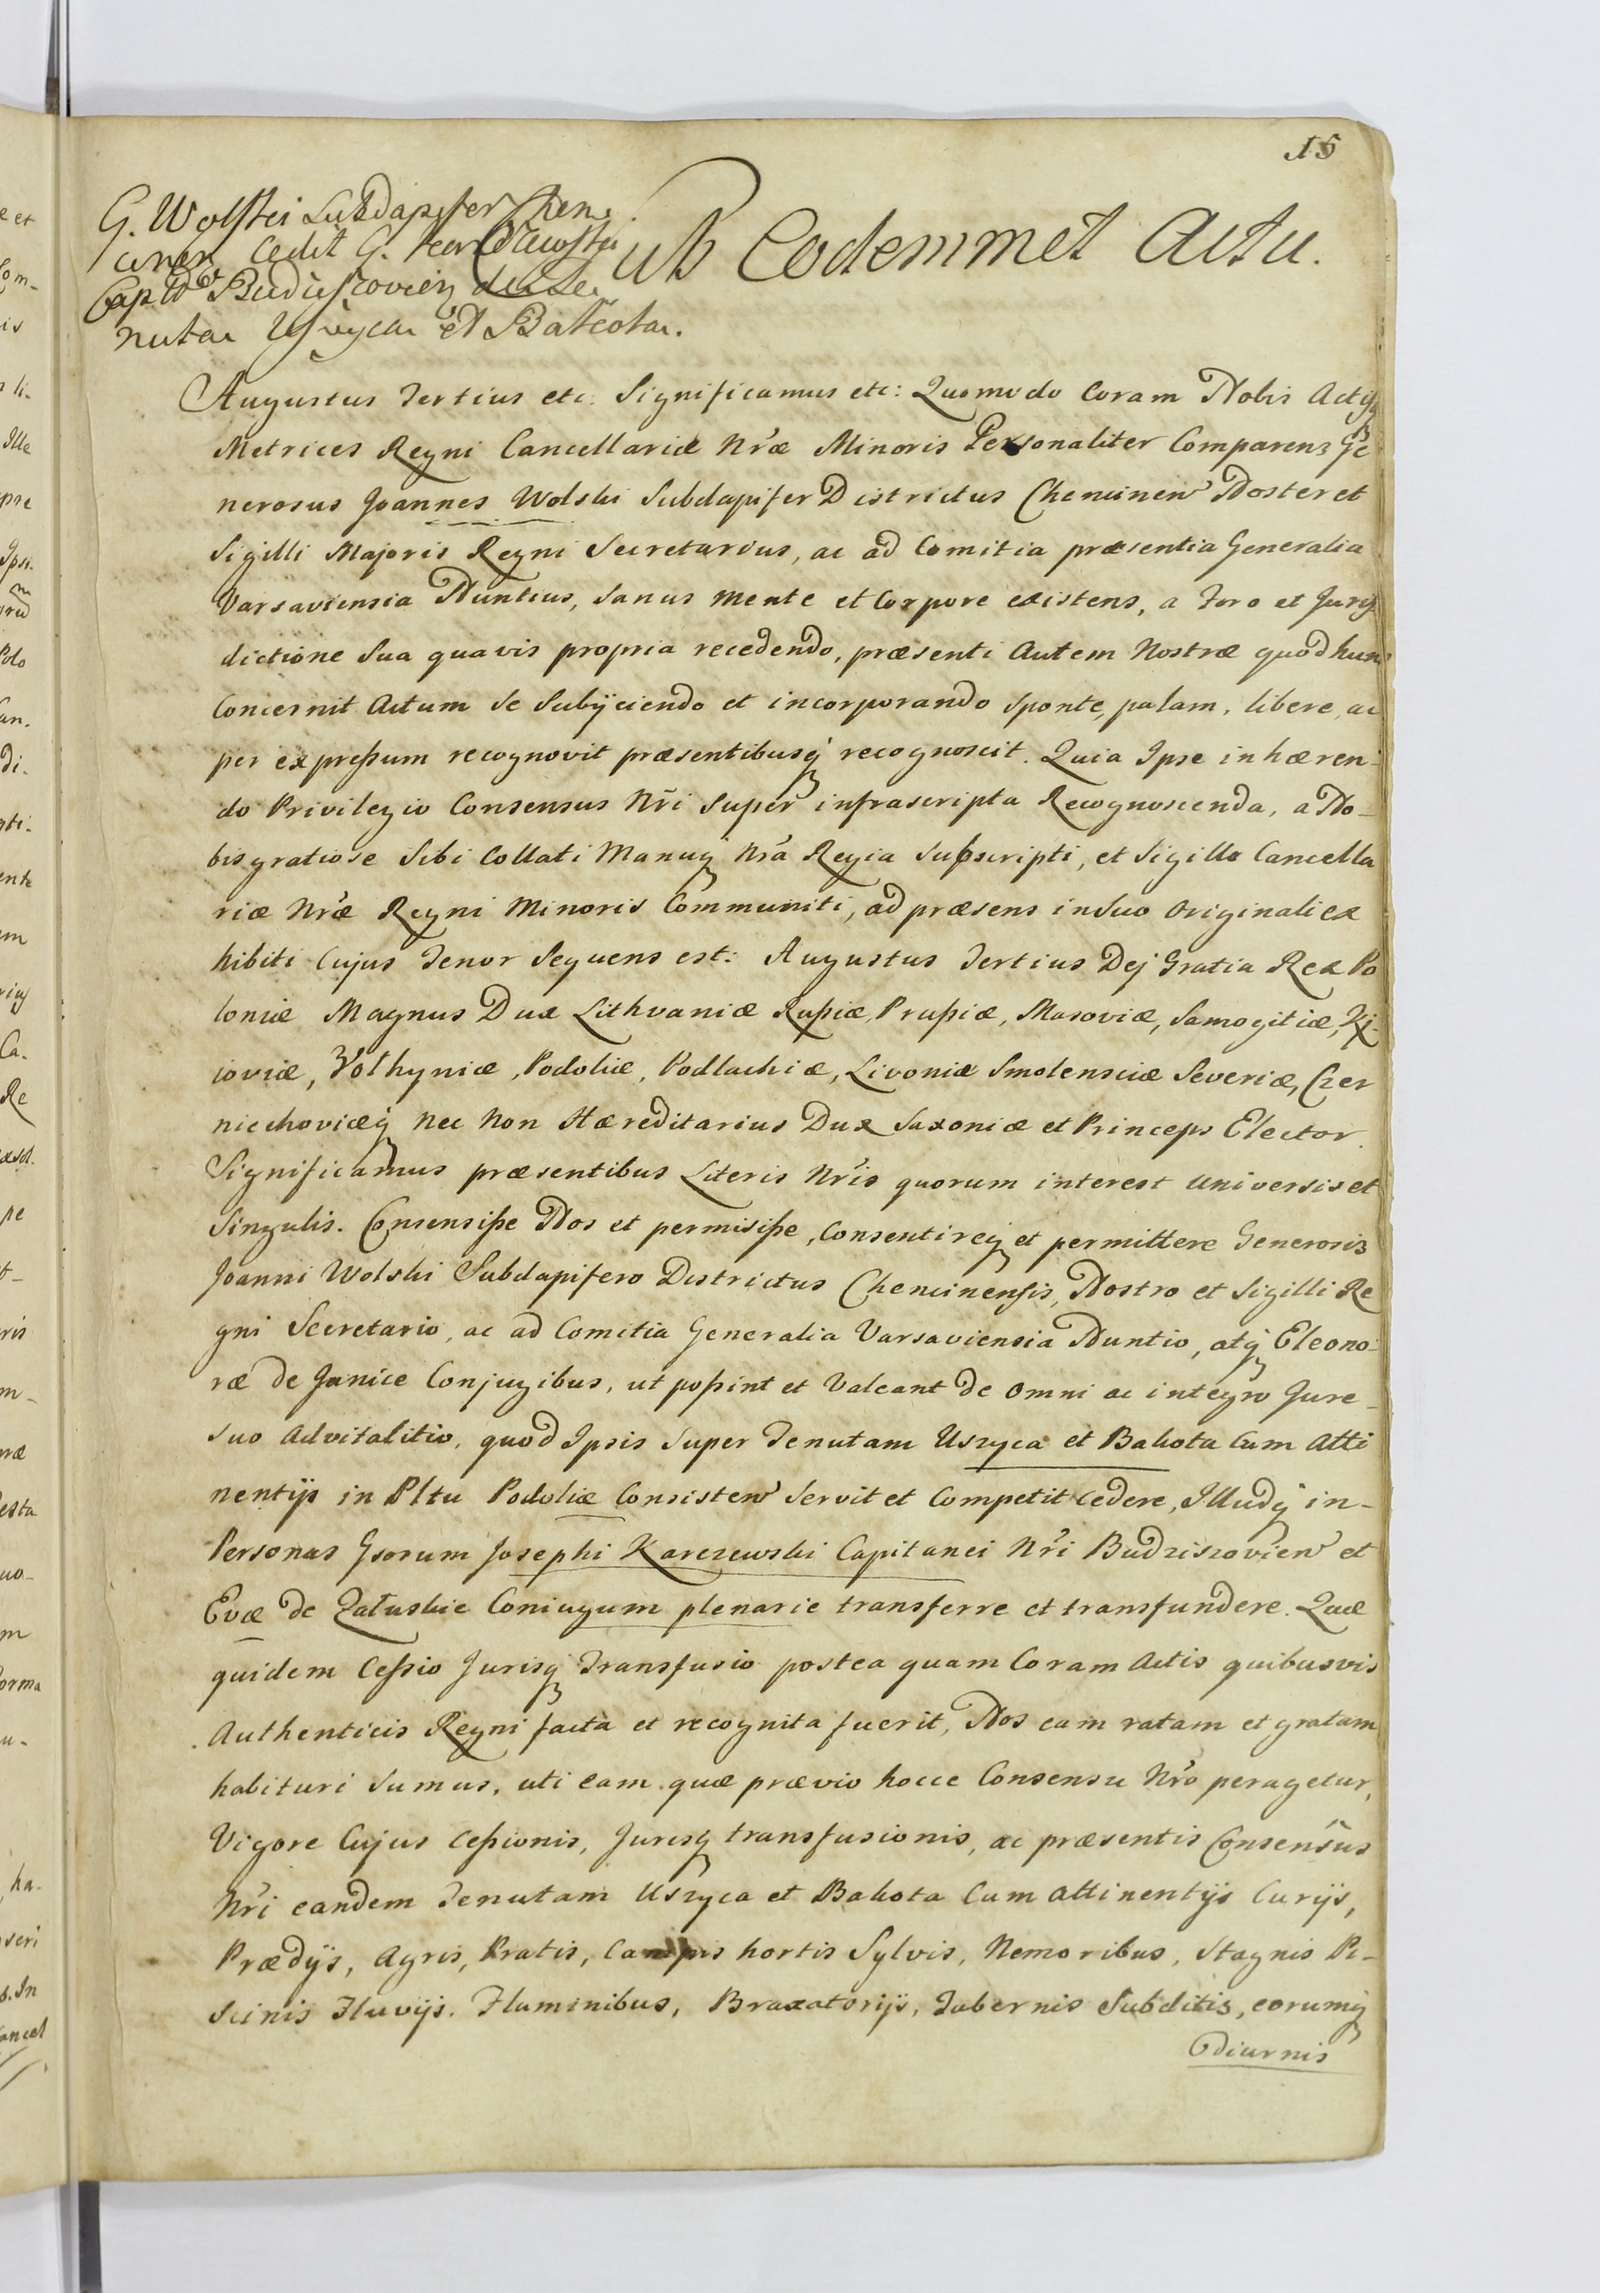 15
G. Wolski Subdapifer Chen
cinen Cedit G. Karczewski
Capito Budziszovien de Te
nuta Uszyca et Bakota.
Sub Eodemmet Actu.
Augustus Tertius etc. Significamus etc: Quomodo Coram Nobis Actisq
Metrices Regni Cancellariæ Nræ Minoris Personaliter Comparens Ge
nerosus Joannes Wolski Subdapifer Districtus Chencinen Noster et
Sigilli Majoris Regni Secretarius, ac ad Comitia præsentia Generalia
Varsaviensia Nuntius, sanus mente et Corpore existens, a Foro et Juris
dictione Sua quavis propria recedendo, præsenti Autem Nostræ quod hunc
Concernit Actum se Subijciendo et incorporando sponte, palam, libere, ac
per expressum recognovit præsentibusq recognoscit. Quia Ipse inhæren-
do Privilegio Consensus Nri super infrascripta Recognoscenda, a No-
bis gratiose Sibi Collati Manuq Nra Regia subscripti, et Sigillo Cancella
riæ Nræ Regni Minoris Communiti, ad præsens in Suo Originali ex
hibiti Cujus Tenor Sequens est: Augustus Tertius Dej Gratia Rex Po
loniæ Magnus Dux Lithvaniæ Russiæ, Prussiæ, Masoviæ, Samogitiæ, Kij-
ioviæ, Volhyniæ, Podoliæ, Podlachiæ, Livoniæ Smolensciæ Severiæ, Czer
niechoviæq nec non Hæreditarius Dux Saxoniæ et Princeps Elector.
Significamus præsentibus Literis Nris quorum interest universis et
Singulis. Consensisse Nos et permisisse, Consentireq et permittere Generosis
Joanni Wolski Subdapifero Districtus Chencinensis, Nostro et Sigilli Re
gni Secretario, ac ad Comitia Generalia Varsaviensia Nuntio, atq Eleono-
ræ de Janice Conjugibus, ut possint et Valeant de omni ac integro Jure
suo Advitalitio, quod Ipsis super Tenutam Uszyca et Bakota Cum Atti
nentijs in Pltu Podoliæ Consisten servit et Competit cedere, Illudq in-
Personas Gsorum Josephi Karczewski Capitanei Nri Budziszovien et
Evæ de Załuskie Coniugum plenarie transferre et transfundere. Quæ
quidem Cessio Jurisq Transfusio postea quam Coram Actis quibusvis
Authenticis Regni facta et recognita fuerit, Nos eam ratam et gratam
habituri sumus, uti eam quæ prævio hocce Consensu Nro peragetur,
Vigore Cujus cessionis, Jurisq transfusionis, ac præsentis Consensus
Nri eandem Tenutam Uszyca et Bakota Cum attinentijs Curijs,
Prædijs, Agris, Pratis, Campis hortis Sylvis, Nemoribus, Stagnis Pi-
scinis Fluvijs. Fluminibus, Braxatorijs, Tabernis Subditis, eorumq
Diurnis